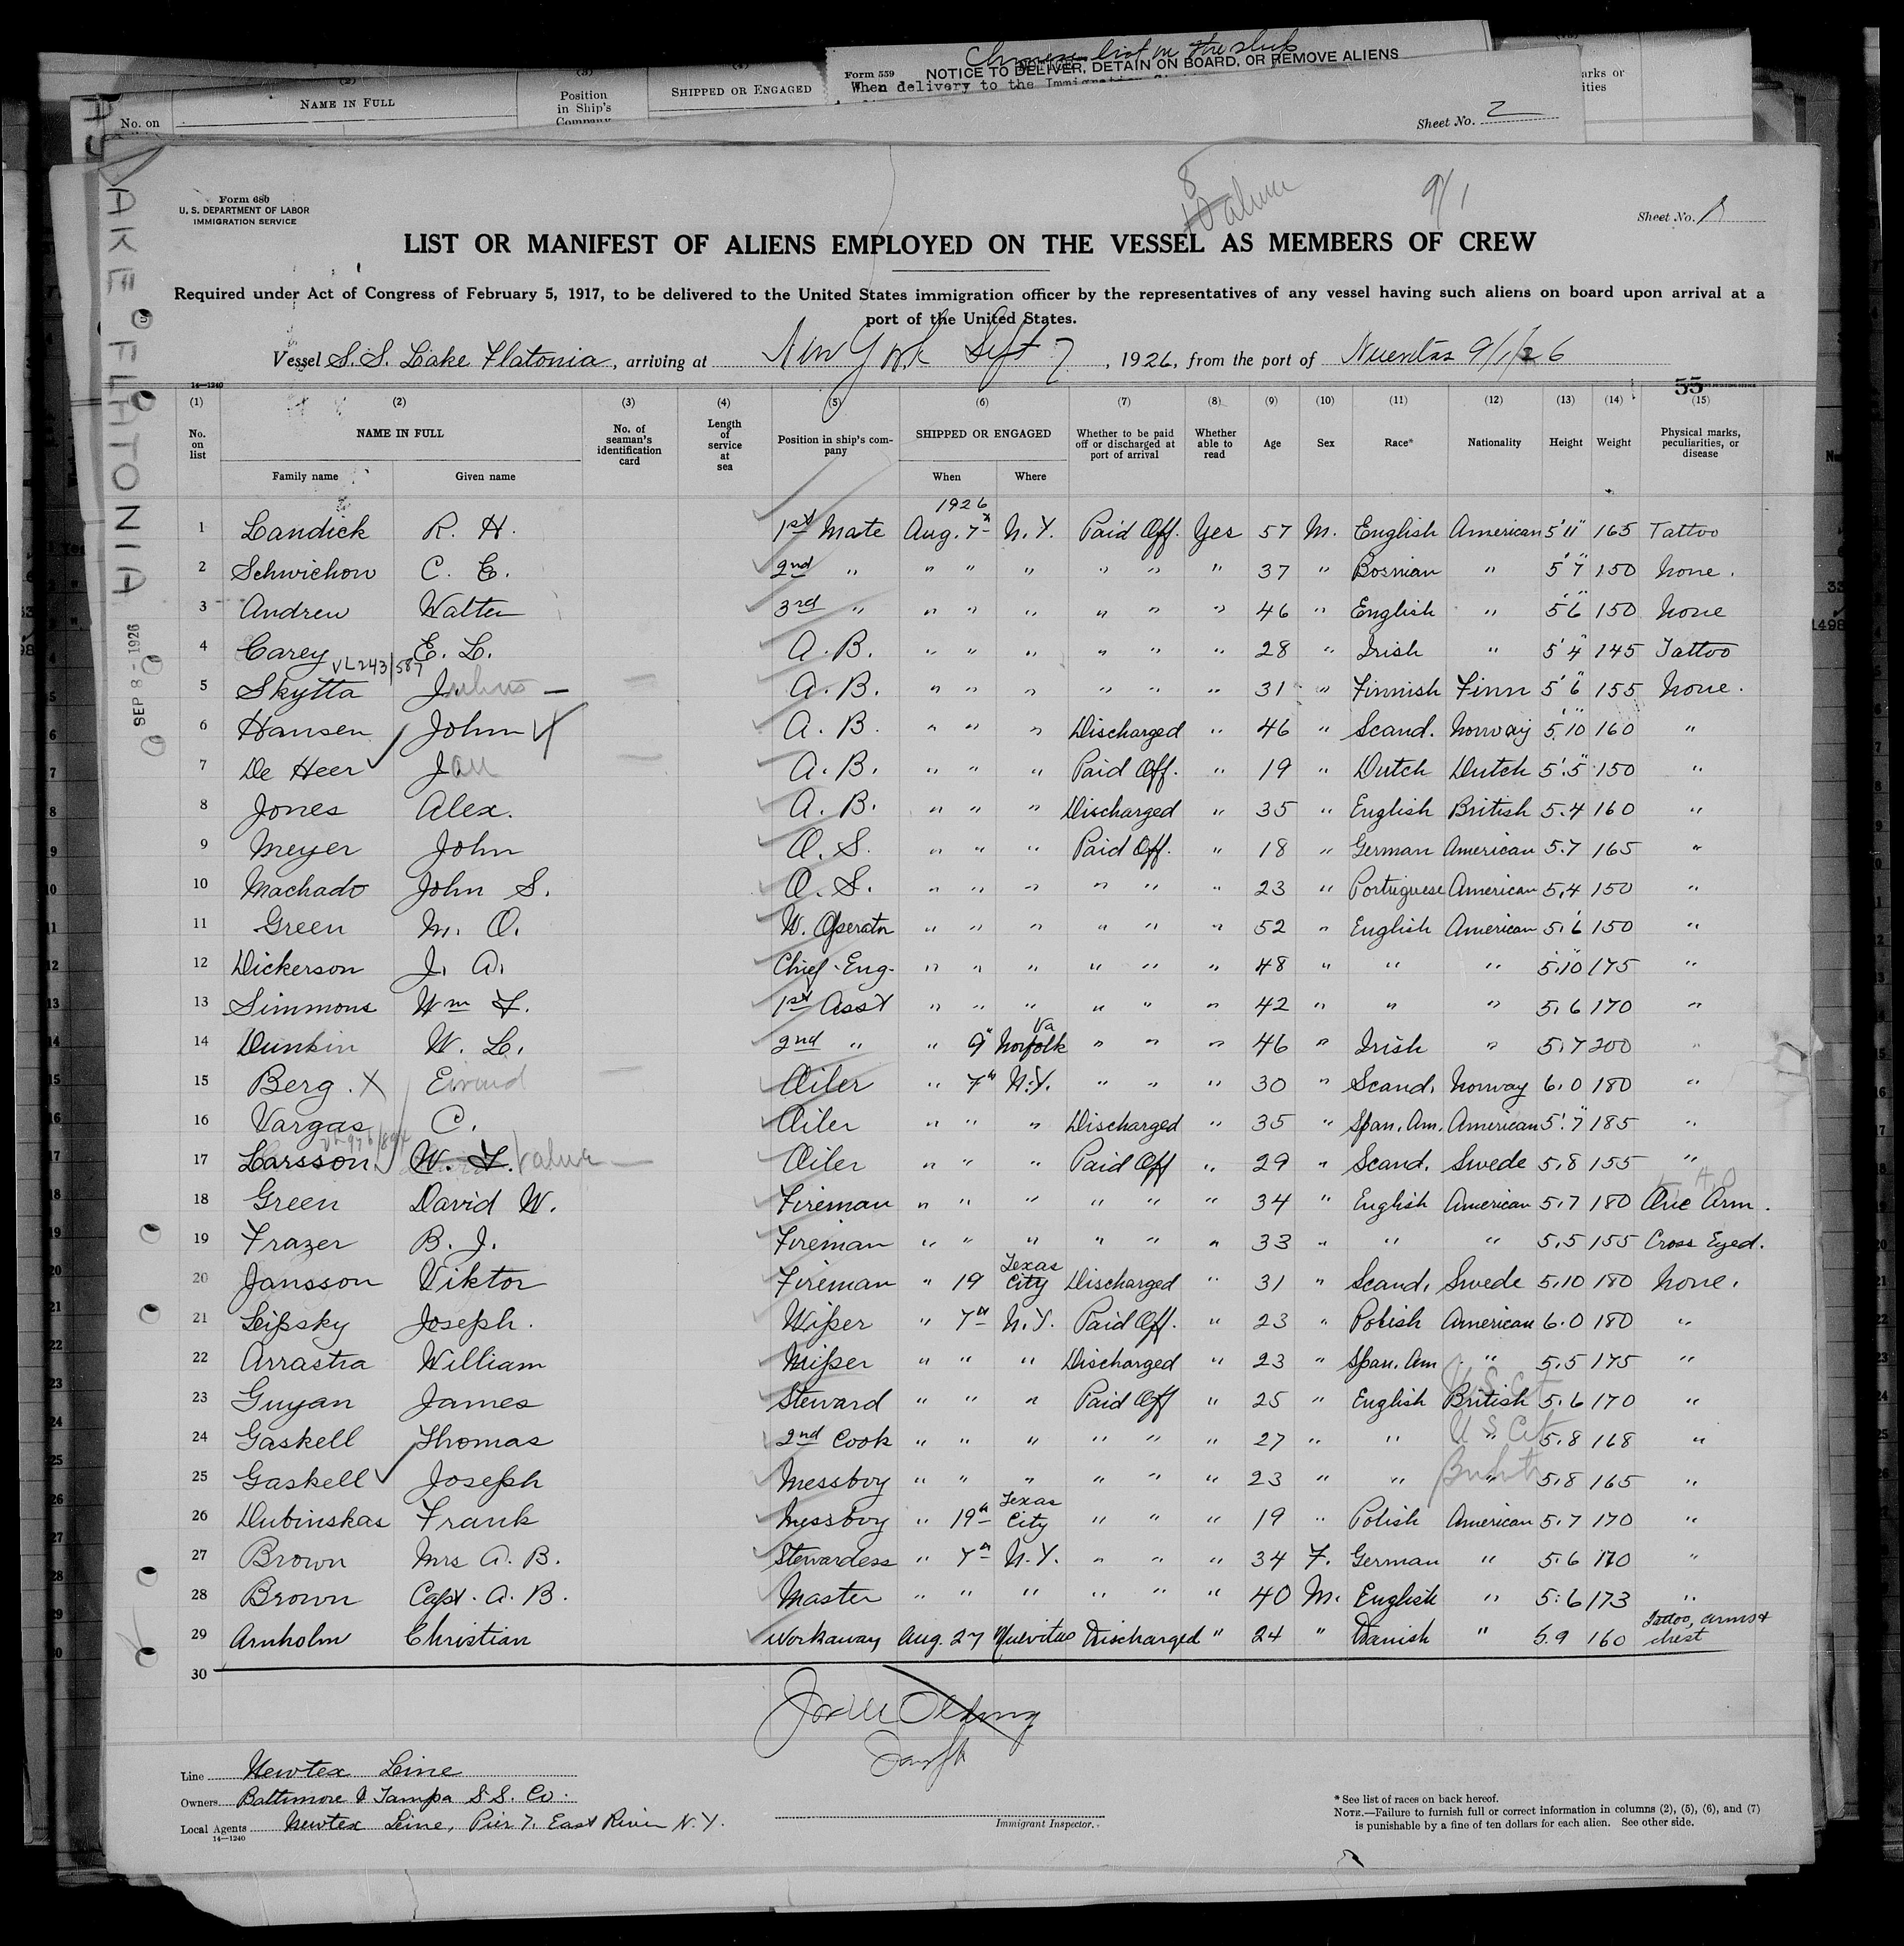 Chinese list in the ship
Form 559 NOTICE TO DELIVER, DETAIN ON BOARD, OR REMOVE ALIENS
When delivery to the Immigration
(2) (3) (4)
No. on NAME IN FULL Position in Ship's Company SHIPPED OR ENGAGED
Sheet No. 2
Form 680
U. S. DEPARTMENT OF LABOR
IMMIGRATION SERVICE
9/1
Sheet No.
LAKE FLATONIA
SEP 8 - 1926
LIST OR MANIFEST OF ALIENS EMPLOYED ON THE VESSEL AS MEMBERS OF CREW
Required under Act of Congress of February 5, 1917, to be delivered to the United States immigration officer by the representatives of any vessel having such aliens on board upon arrival at a
port of the United States.
Vessel S.S. Lake Flatonia, arriving at New York Sept 7, 1926, from the port of Nuevitas 9/1/26
14—1240
55
(1) (2) (3) (4) (5) (6) (7) (8) (9) (10) (11) (12) (13) (14) (15)
No. on list NAME IN FULL No. of seaman's identification card Length of service at sea Position in ship's company SHIPPED OR ENGAGED Whether to be paid off or discharged at port of arrival Whether able to read Age Sex Race* Nationality Height Weight Physical marks, peculiarities, or disease
Family name Given name When Where
1926
1 Landick R. H. 1st Mate Aug. 7th N.Y. Paid Off. Yes 57 M. English American 5'11" 165 Tattoo
2 Schwichow C. E. 2nd " " " " " " " 37 " Bosnian " 5'7" 150 None.
3 Andrew Walter 3rd " " " " " " " 46 " English " 5'6" 150 None
4 Carey E. L. A.B. " " " " " " 28 " Irish " 5'4" 145 Tattoo
VL243/587
5 Skytta Julius — A.B. " " " " " " 31 " Finnish Finn 5'6" 155 None.
6 Hansen John A.B. " " " Discharged " 46 " Scand. Norway 5'10" 160 "
7 De Heer Jan A.B. " " " Paid Off. " 19 " Dutch Dutch 5'.5" 150 "
8 Jones Alex. A.B. " " " Discharged " 35 " English British 5.4 160 "
9 Meyer John O.S. " " " Paid Off. " 18 " German American 5.7 165 "
10 Machado John S. O.S. " " " " " " 23 " Portuguese American 5.4 150 "
11 Green M. O. W. Operator " " " " " " 52 " English American 5.6 150 "
12 Dickerson J. A. Chief-Eng. " " " " " " 48 " " " 5.10 175 "
13 Simmons Wm F. 1st Asst " " " " " " 42 " " " 5.6 170 "
14 Dunkin W. L. 2nd " " 9" Norfolk Va " " " 46 " Irish " 5.7 200 "
15 Berg. X Eivind Oiler " 7th N.Y. " " " 30 " Scand. Norway 6.0 180 "
16 Vargas C. Oiler " " " Discharged " 35 " Span. Am. American 5'.7" 185 "
17 Larsson W. F. Oiler " " " Paid Off " 29 " Scand. Swede 5.8 155 "
18 Green David W. Fireman " " " " " " 34 " English American 5.7 180 One Arm.
19 Frazer B. J. Fireman " " " " " " 33 " " " 5.5 155 Cross Eyed.
20 Jansson Viktor Fireman " 19 Texas City Discharged " 31 " Scand. Swede 5.10 180 None.
21 Leipsky Joseph. Wiper " 7th N.Y. Paid Off. " 23 " Polish American 6.0 180 "
22 Arrastra William Wiper " " " Discharged " 23 " Span. Am " 5.5 175 "
23 Guyan James Steward " " " Paid Off " 25 " English British 5.6 170 "
24 Gaskell Thomas 2nd Cook " " " " " " 27 " " " U S Cit 5.8 168 "
25 Gaskell Joseph Messboy " " " " " " 23 " " " British 5.8 165 "
26 Dubinskas Frank Messboy " 19th Texas City " " " 19 " Polish American 5.7 170 "
27 Brown Mrs A. B. Stewardess " 7th N.Y. " " " 34 F. German " 5.6 170 "
28 Brown Capt. A. B. Master " " " " " " 40 M. English " 5:6 173 "
29 Arnholm Christian Workaway Aug. 27 Nuevitas Discharged " 24 " Danish " 5.9 160 Tattoo, arms + chest
30
Line Newtex Line
Owners Baltimore & Tampa S.S. Co.
Local Agents Newtex Line, Pier 7. East River N.Y.
14—1240
Immigrant Inspector.
* See list of races on back hereof.
NOTE.—Failure to furnish full or correct information in columns (2), (5), (6), and (7)
is punishable by a fine of ten dollars for each alien. See other side.